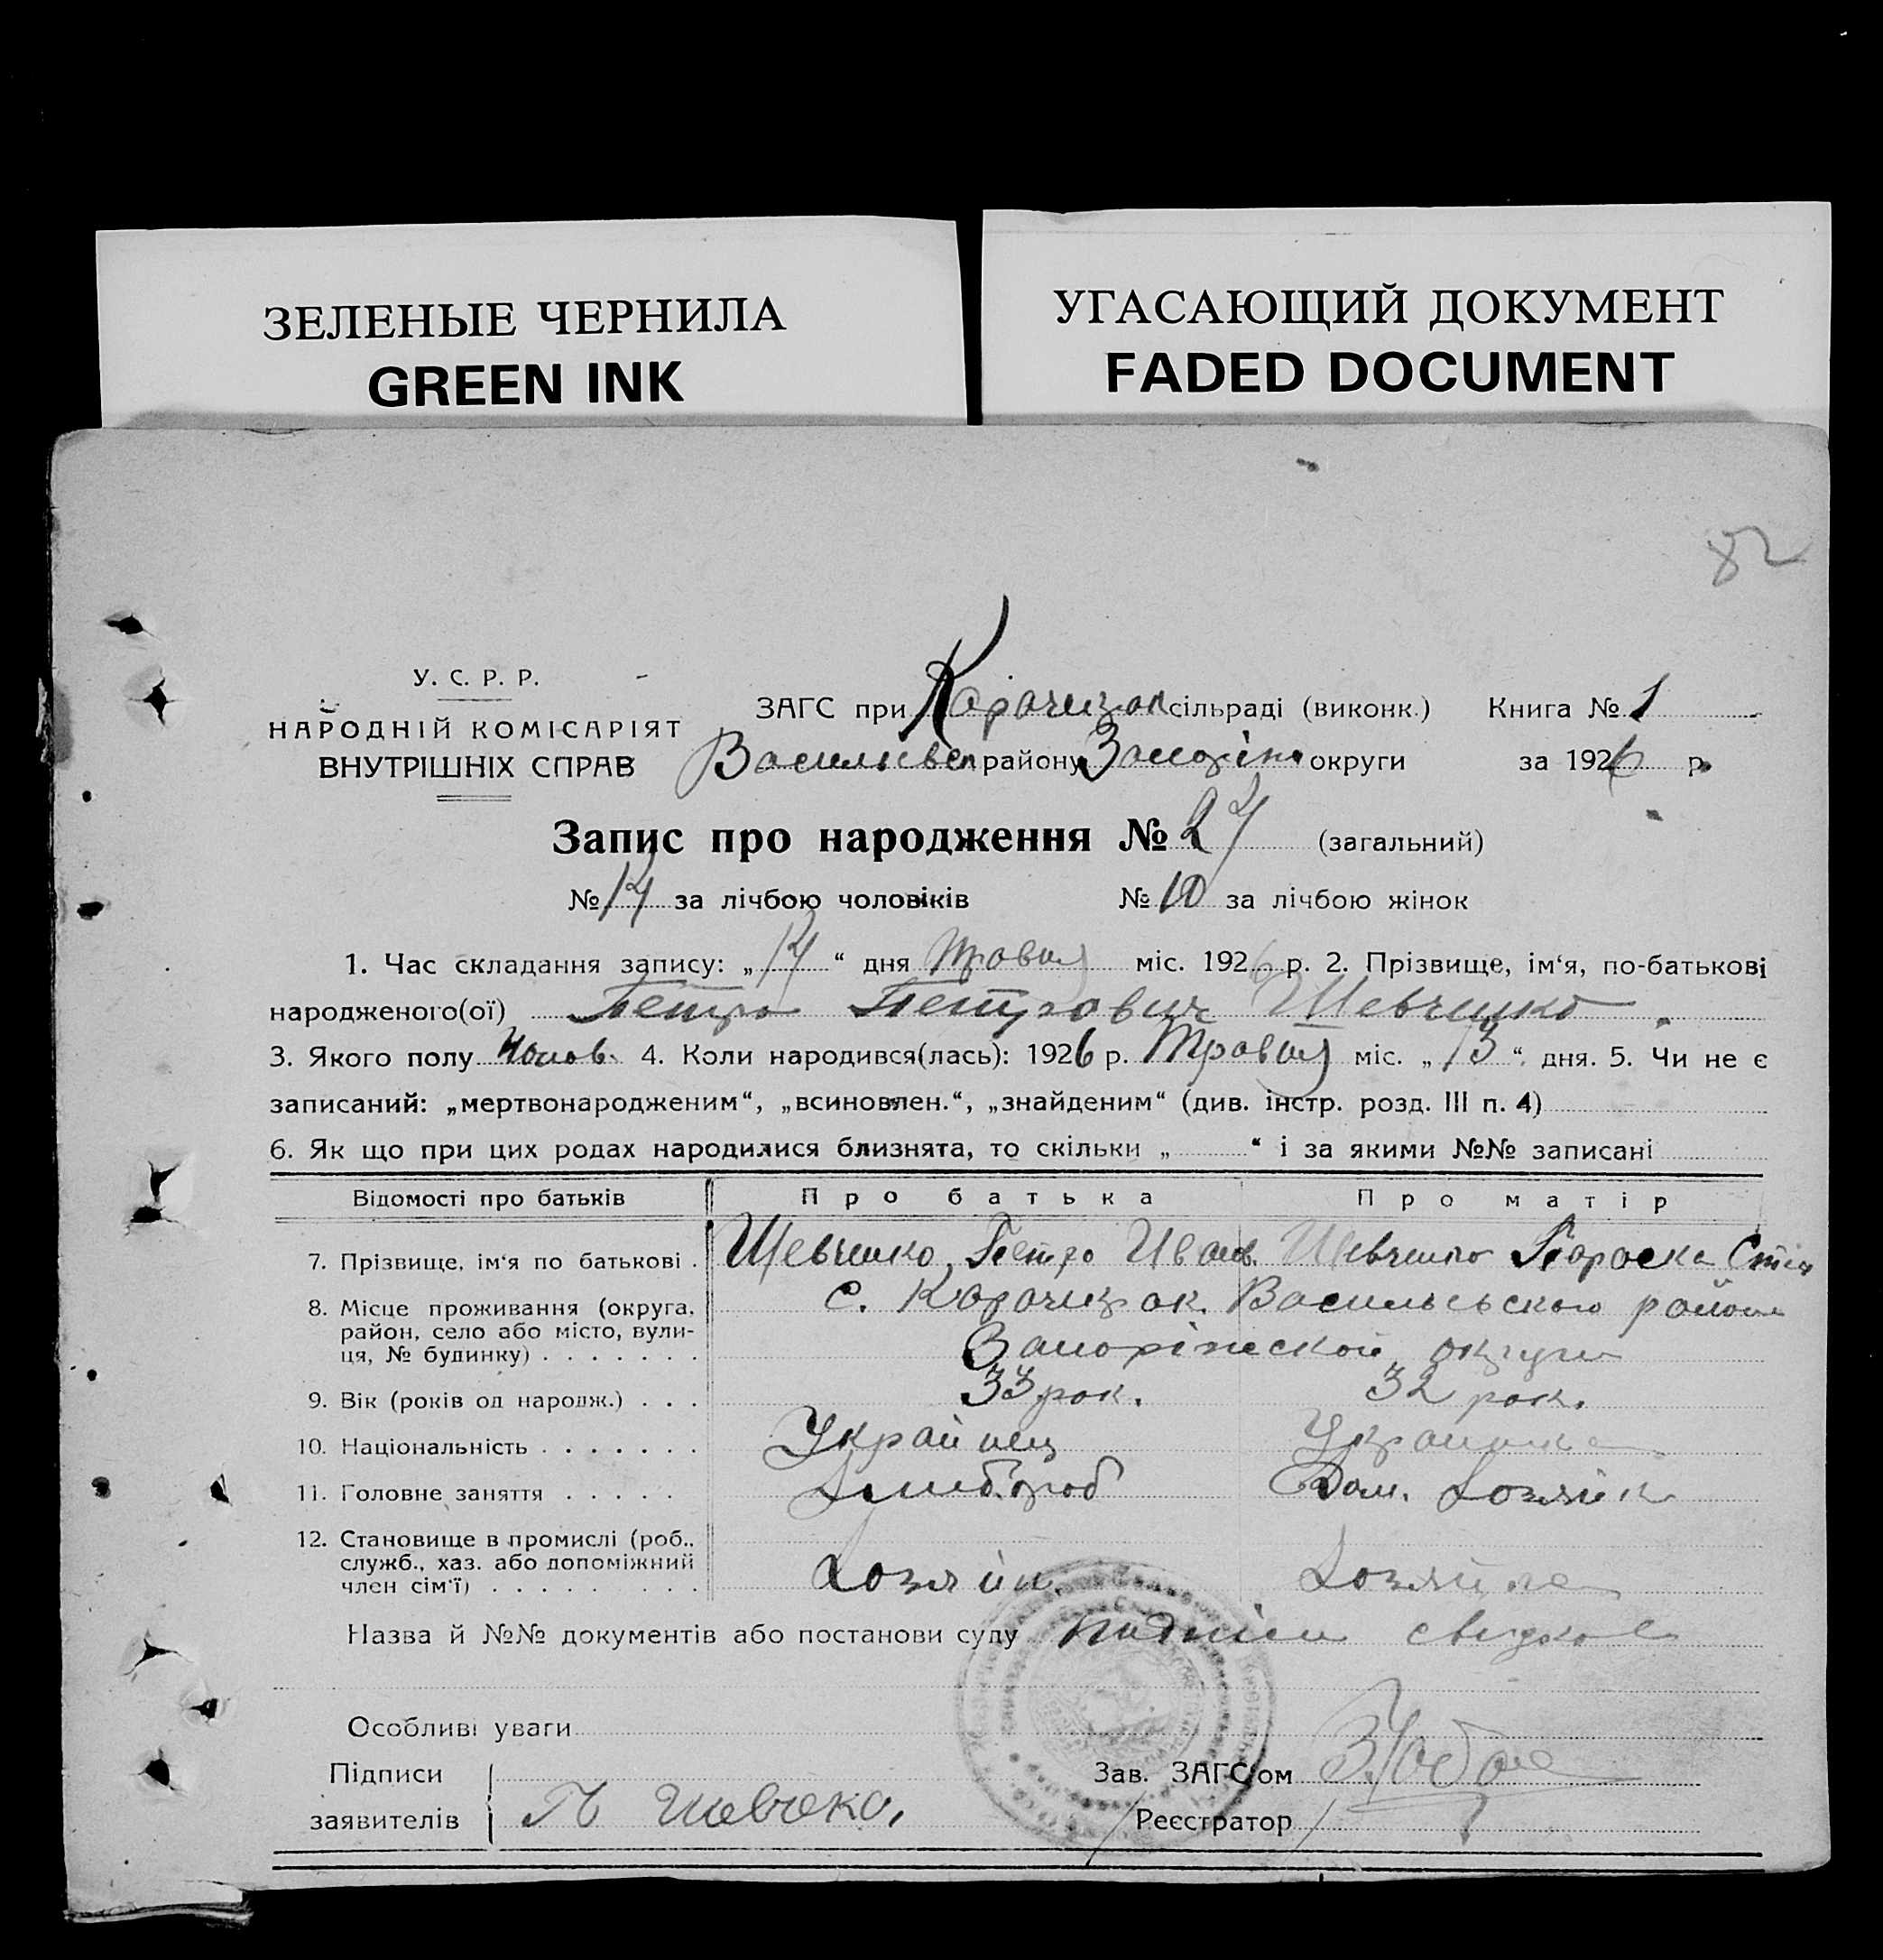 ЗЕЛЕНЫЕ ЧЕРНИЛА
GREEN INK
УГАСАЮЩИЙ ДОКУМЕНТ
FADED DOCUMENT
82
У. С. Р. Р.
НАРОДНІЙ КОМІСАРІЯТ
ВНУТРІШНІХ СПРАВ
ЗАГС при Карачикрак сільраді (виконк.) Книга № 1
Васильєвс району Запоріж округи за 1926 р.
Запис про народження № 24 (загальний)
№ 14 за лічбою чоловіків № 10 за лічбою жінок
1. Час складання запису: „14“ дня Травня міс. 1926 р. 2. Прізвище, ім‘я, по-батькові
народженого(ої) Петро Петрович Шевченко
3. Якого полу Чолов. 4. Коли народився(лась): 1926 р. Травня міс. „13“ дня. 5. Чи не є
записаний: „мертвонародженим“, „всиновлен.“, „знайденим“ (див. інстр. розд. III п. 4)
6. Як що при цих родах народилися близнята, то скільки „ “ і за якими №№ записані
Відомості про батьків Про батька Про матір
7. Прізвище, ім‘я по батькові . Шевченко Петро Иван. Шевченко Параска
8. Місце проживання (округа, район, село або місто, вулиця, № будинку) с. Карачикрак Васильєвського району
Запоріжской округи
9. Вік (років од народж.) . . . 33 рок. 32 рок.
10. Національність . . . . . . . Українец Українка
11. Головне заняття . . . . . Хлибороб Дом. Хозяйк
12. Становище в промислі (роб., служб., хаз. або допоміжний член сім‘ї) Хозяін. Хозяйка
Назва й №№ документів або постанови суду
Особливі уваги
Підписи
заявителів П Шевчеко,
Зав. ЗАГС‘ом
Реєстратор